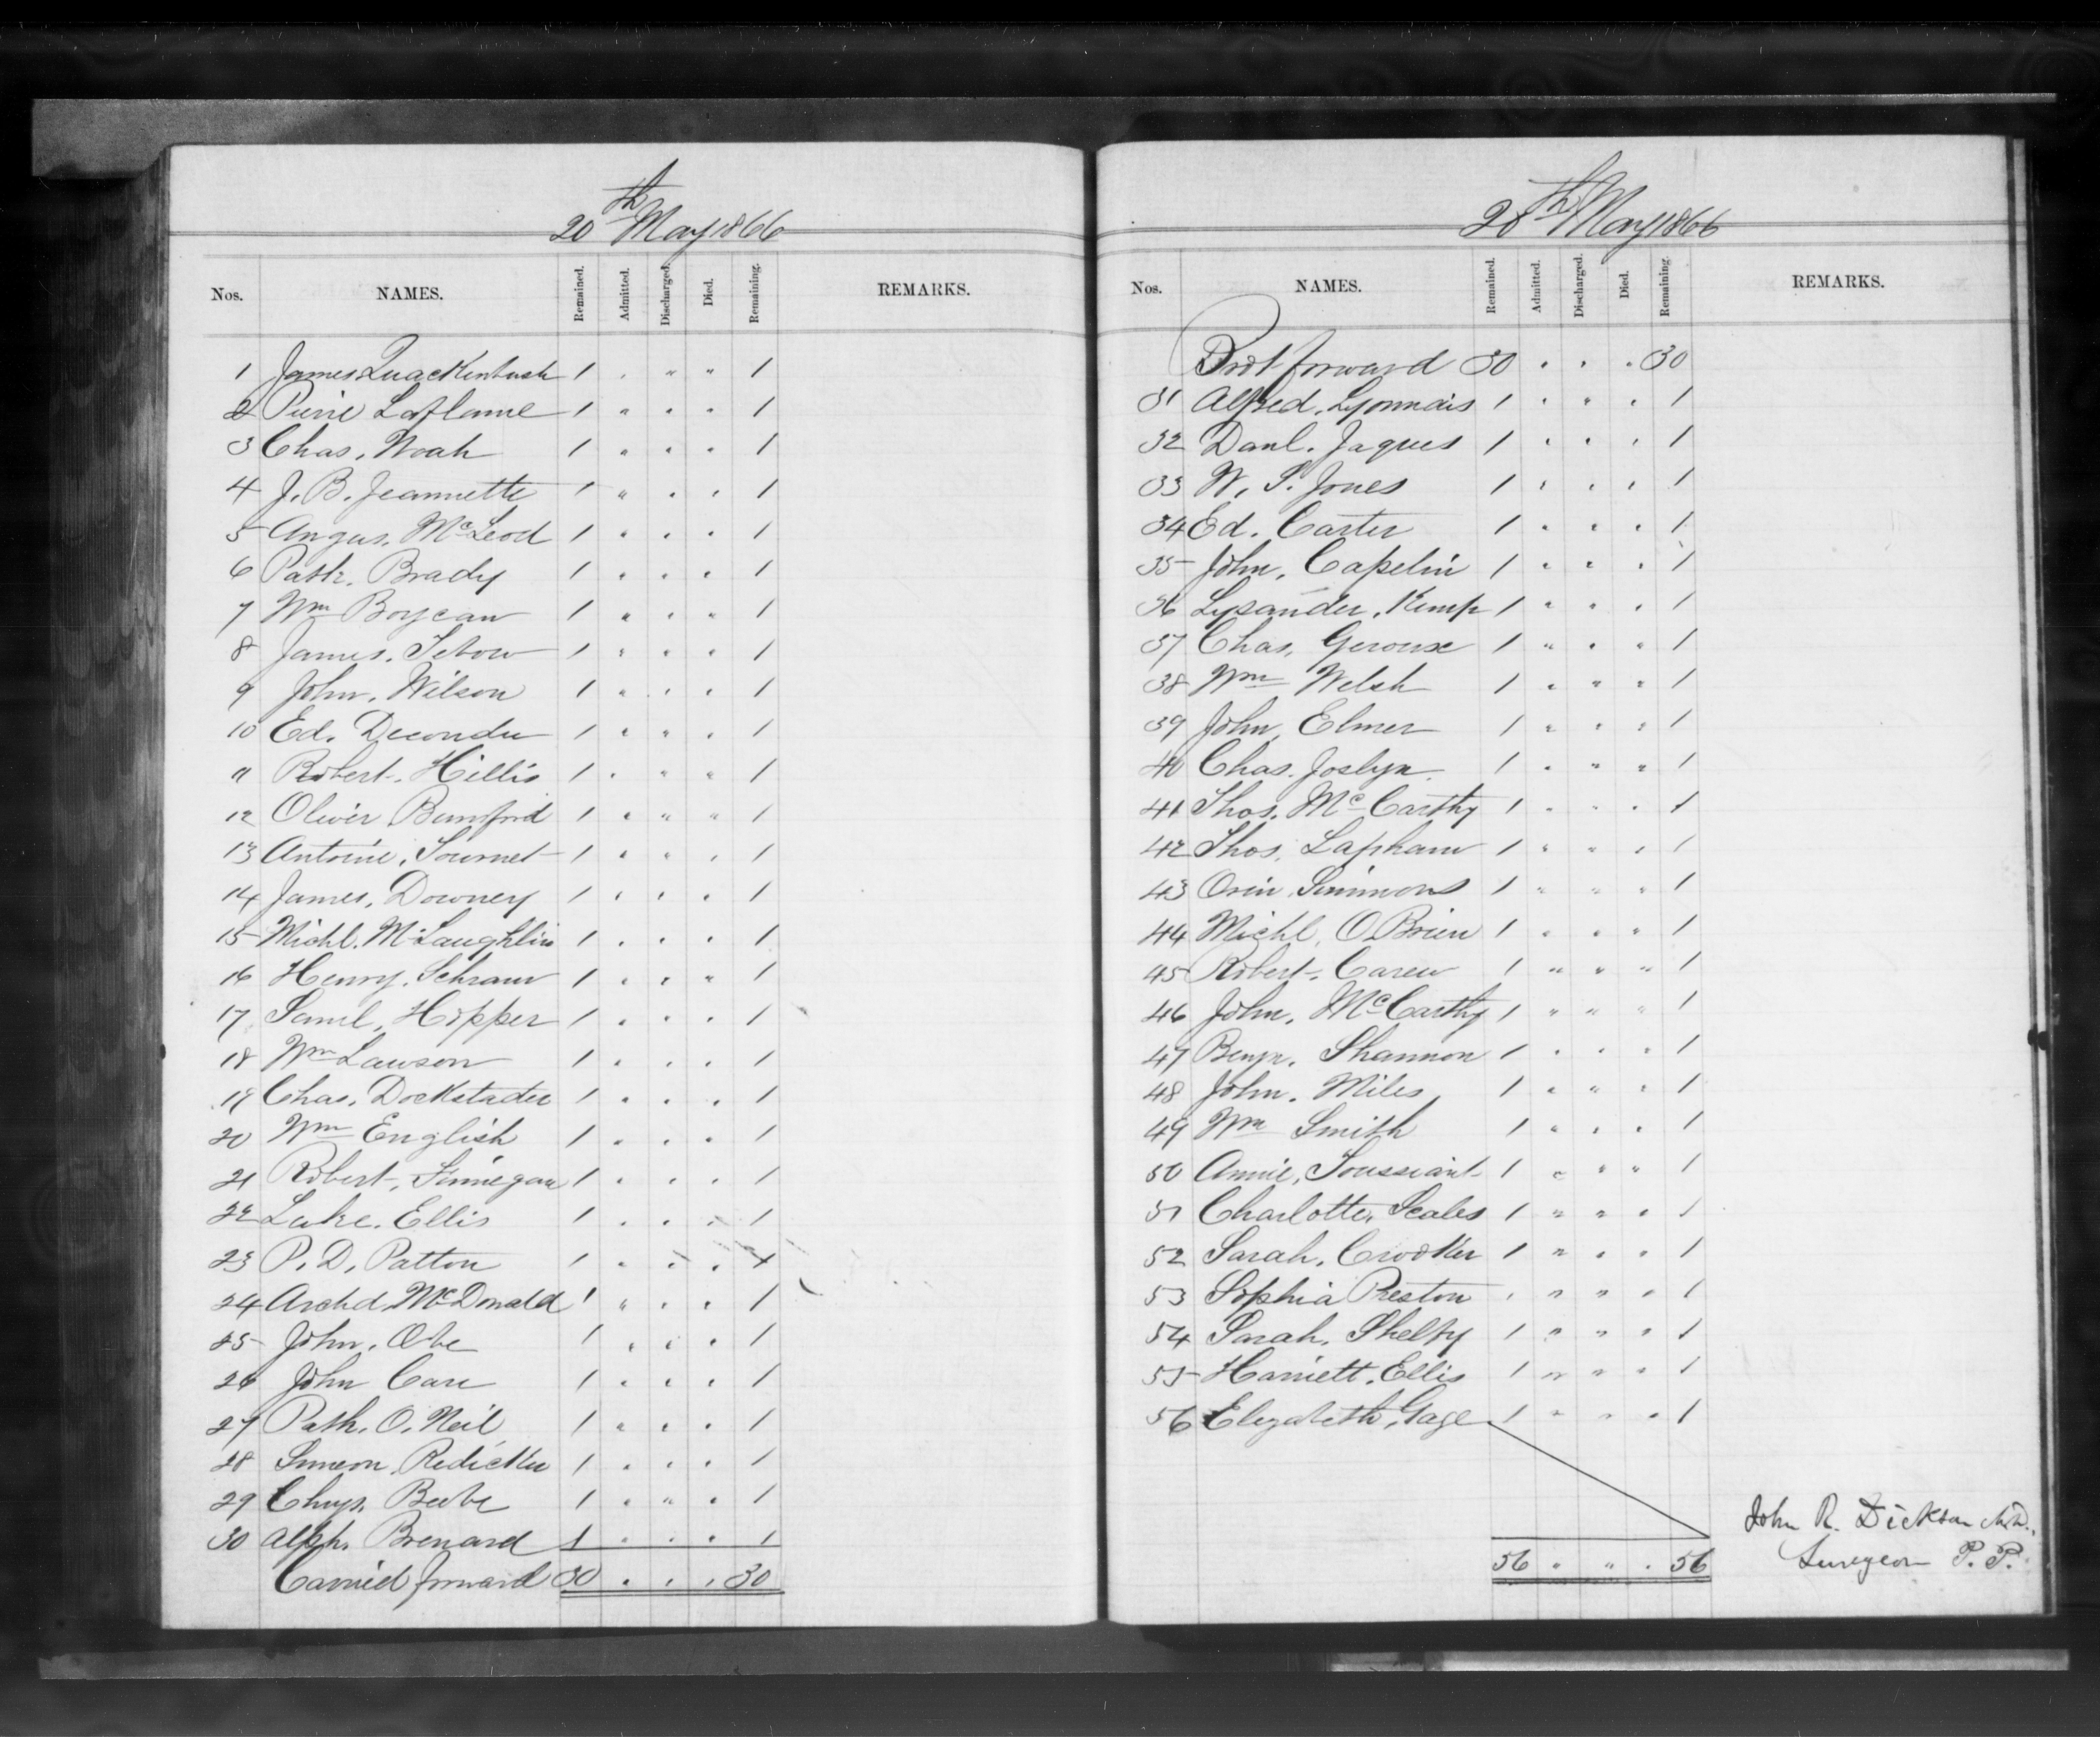 20th May 1866
Nos. NAMES. Remained. Admitted. Discharged. Died. Remaining. REMARKS.
1 James Quackenbush 1 . " " 1
2 Pierre Laflame 1 " . . 1
3 Chas. Noah 1 " . . 1
4 J. B. Jeannette 1 " . . 1
5 Angus. McLeod 1 " . . 1
6 Patk. Brady 1 . . . 1
7 Wm Boycan 1 " . " 1
8 James. Sebow 1 " . . 1
9 John. Wilson 1 " . . 1
10 Ed. Decondu 1 " " . 1
11 Robert. Hillis 1 . " " 1
12 Oliver Bumford 1 " " " 1
13 Antoine. Sournet 1 " " . 1
14 James. Downey 1 . . . 1
15 Michl. McLaughlin 1 . . . 1
16 Henry. Schram 1 . . " 1
17 Saml. Hopper 1 . . . 1
18 Wm Lawson 1 . . . 1
19 Chas. Dockstader 1 " . . 1
20 Wm English 1 . . . 1
21 Robert. Finnegan 1 . . . 1
22 Luke. Ellis 1 . . . 1
23 P. D. Patton 1 . . . 1
24 Archd McDonald 1 " . . 1
25 John. Obe 1 . . . 1
26 John Care 1 . . . 1
27 Patk. O. Neil 1 " . . 1
28 Simeon. Redicker 1 . . . 1
29 Chrys. Beebe 1 " " . 1
30 Alph. Brenard 1 . . . 1
Carried forward 30 . . . 30
20th May 1866
Nos. NAMES. Remained. Admitted. Discharged. Died. Remaining. REMARKS.
Brot forward 30 . . . 30
31 Alfred. Lyonnais 1 . " . 1
32 Danl. Jaques 1 . . . 1
33 W. S. Jones 1 . . . 1
34 Ed. Carter 1 . . . 1
35 John. Capelin 1 . . . 1
36 Lysander. Kemp 1 " . . 1
37 Chas. Geroux 1 " . " 1
38 Wm Welsh 1 . " " 1
39 John Elmer 1 " . " 1
40 Chas. Joslyn 1 . " " 1
41 Thos. McCarthy 1 . . . 1
42 Thos. Lapham 1 " " . 1
43 Orin. Simmons 1 " " " 1
44 Michl. O.Brien 1 . " " 1
45 Robert. Carew 1 " " " 1
46 John. McCarthy 1 " " " 1
47 Benjn. Shannon 1 . . . 1
48 John. Miles 1 . " . 1
49 Wm Smith 1 " . . 1
50 Annie. Toussiant 1 " " " 1
51 Charlotte. Scales 1 " " . 1
52 Sarah. Crooker 1 " . . 1
53 Sophia Preston . " " " 1
54 Sarah. Shelfy 1 " " " 1
55 Harriett. Ellis 1 " " " 1
56 Elizabeth. Gage 1 " . . 1
John R. Dickson M.D.,
56 " " . 56 Surgeon P. P.